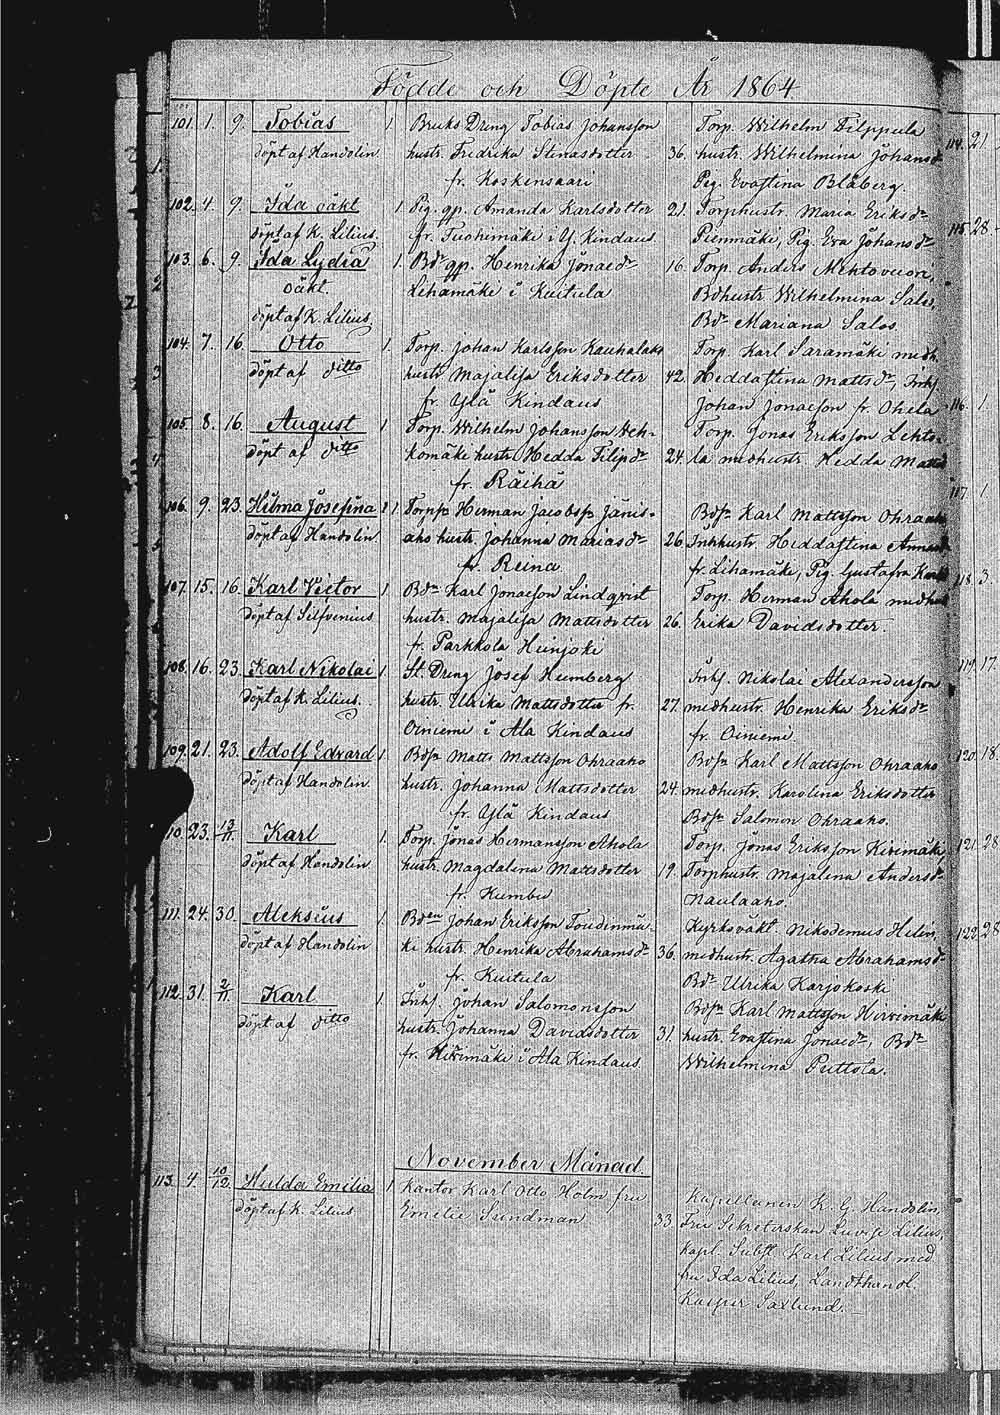 Födde och Döpte År 1864
101. 1. 9. Tobias 1. Bruks Dreng Tobias Johansson Torp. Wilhelm Filppula
döpt af Handolin hustr. Fredrika Stinasdotter 36. hustr. Wilhelmina Johansdr
fr. Koskensaari Pig. Evastina Blåberg.
102. 4. 9. Ida oäkt 1. Pig. gp. Amanda Karlsdotter 21. Torphustr. Maria Eriksdr
döpt af K. Lilius. fr. Tuohimäki i Y. Kindaus Pienmäki, Pig. Eva Johansdr
103. 6. 9. Ida Lydia 1. Bdr gp. Henrika Jonaedr 16. Torp. Anders Mehtovuori,
oäkt. Lihamäki i Kuitula Bdhustr. Wilhelmina Salo,
döpt af K. Lilius Bdr Mariana Salos
104. 7. 16. Otto 1. Torp. Johan Karlsson Kauhalaks Torp. Karl Saramäki medh.
döpt af ditto hustr. Majalisa Eriksdotter 42. Heddastina Mattsdr, Inhs
fr. Ylä Kindaus Johan Jonaeson fr. Ohela
105. 8. 16. August 1 Torp. Wilhelm Johansson Weh- Torp. Jonas Eriksson Lehto-
döpt af ditto komäki hustr. Hedda Filipdr 24. la medhustr. Hedda Matts
fr. Räihä
106. 9. 23. Hilma Josefina 1 1. Tornp. Herman Jacobsp. Jänis- Bdsp. Karl Mattsson Ohraaho
döpt af Handolin. aho hustr. Johanna Mariasdr 26. Inhhustr. Heddastina
fr. Reina fr. Lihamäki, Pig. Gustafva
107. 15. 16. Karl Victor 1. Bdn Karl Jonaeson Lindqvist Torp. Herman Ahola medhus
döpt af Selfvenius hustr. Majalisa Mattsdotter 26. Erika Davidsdotter.
fr. Parkkola Heinjoki
108. 16. 23. Karl Nikolai 1 St. Dreng Josef Humberg Inhs. Nikolai Alexandersson
döpt af K. Lilius. hustr. Ulrika Mattsdotter fr. 27. medhustr. Henrika Eriksdr
Oiniemi i Ala Kindaus fr. Oiniemi.
109. 21. 23. Adolf Edvard 1. Bdsp. Matts Mattsson Ohraaho Bdsp. Karl Mattsson Ohraaho
döpt af Handolin. hustr. Johanna Mattsdotter 24. medhustr. Karolina Eriksdotter
fr. Ylä Kindaus Bdsp. Salomon Ohraaho.
110. 23. 13/11. Karl 1. Torp. Jonas Hermansson Ahola Torp. Jonas Eriksson Kivimäki,
döpt af Handolin hustr. Magdalena Mattsdotter 19. Torphustr. Majalena Andersdr
fr. Humbu Naulaaho.
111. 24. 30. Aleksius 1. Bden Johan Eriksson Toudinmä- Kyrkovakt. Nikodemus Helen,
döpt af Handolin ki hustr. Henrika Abrahamsdr 36. medhustr. Agatha Abrahamsdr
fr. Kuitula Bdr Ulrika Karjokoski
112. 31. 2/11. Karl 1. Inhs. Johan Salomonsson Bdsp. Karl Mattsson Hirvimäki
döpt af ditto hustr. Johanna Davidsdotter 31. hustr. Evastina Jonaedr, Bdr
fr. Hirvimäki i Ala Kindaus. Wilhelmina Puttola.
November Månad.
113. 4. 10/12. Hulda Emilia 1 Kantor Karl Otto Holm fru Kapellanen K. G. Handolin,
döpt af K. Lilius Emelie Sundman 33. Fru Sekreterskan Lovise Lilius,
Kapl. Subst. Karl Lilius med
fru Ida Lilius, Landthandl.
Kasper Saxlund.
114. 21.
115. 28.
116. 1.
117. 1
118. 3.
119. 17.
120. 18.
121. 28
122. 28